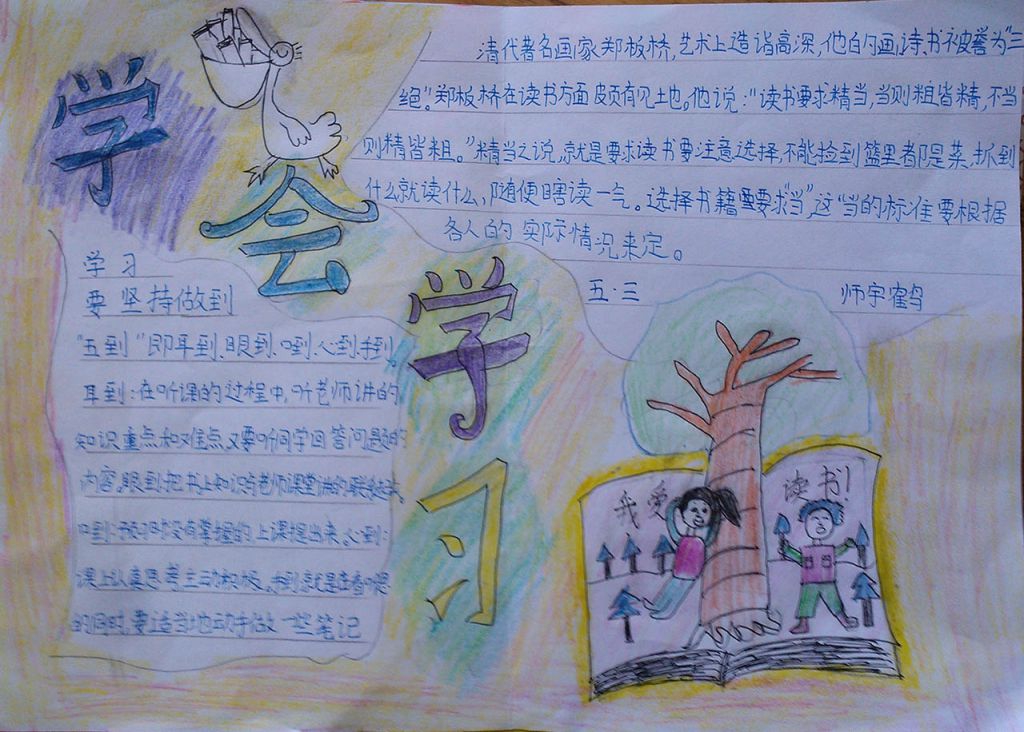 学会学习
清代著名画家郑板桥,艺术上造诣高深,他的画,诗,书被誉为"三
绝"。郑板桥在读书方面颇有见地。他说:"读书要求精当,当则粗皆精,不当
则精皆粗。"精当之说,就是要求读书要注意选择,不能捡到篮里都是菜,抓到
什么就读什么,随便瞎读一气。选择书籍需要求"当",这"当的标准要根据
各人的实际情况来定。
五·三 师宇鹤
学习
要坚持做到
"五到"即耳到、眼到、口到、心到、手到。
耳到:在听课的过程中,听老师讲的
知识重点和难点,又要听同学回答问题的
内容,眼到:把书上知识与老师课堂讲的联系起来,
口到:预习时没有掌握的上课提出来,心到:
课上认真思考主动积极,手到就是在看听思
的同时,要适当地动手做一些笔记
我爱 读书!